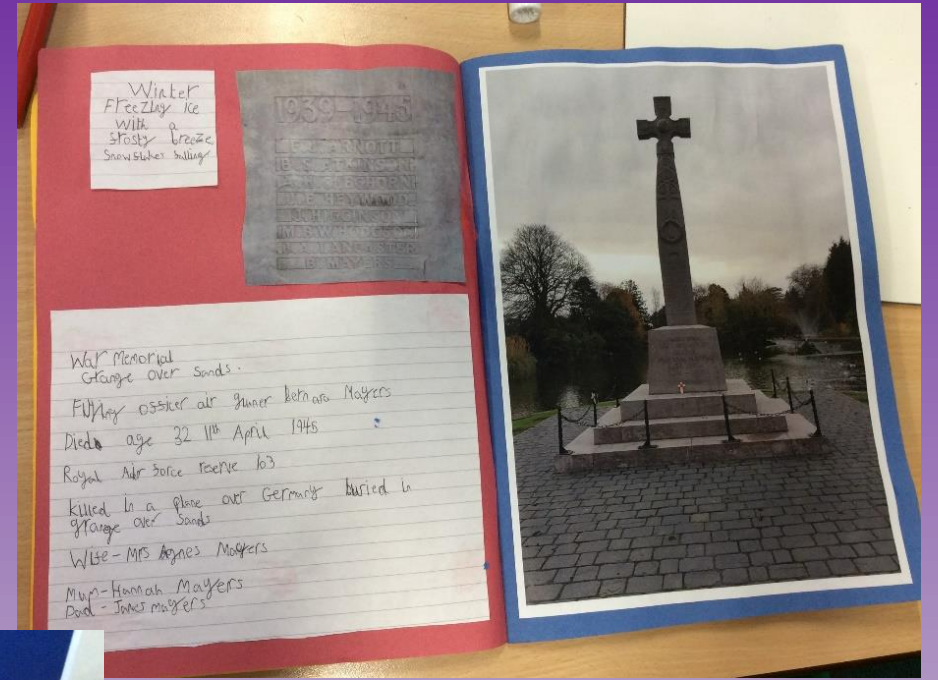 Winter
Freezing ice
With a
frosty breeze
Snowflakes falling
1939-1945
HEYWOOD
HIGGINSON
LANCASTER
B MAYERS
War Memorial
Grange over Sands.
Flying officer air gunner bernard Mayers
Died age 32 11th April 1945
Royal Air force reserve 103
killed in a plane over Germany buried in
grange over Sands
Wife - Mrs Agnes Mayers
Mum - Hannah Mayers
Dad - James mayers